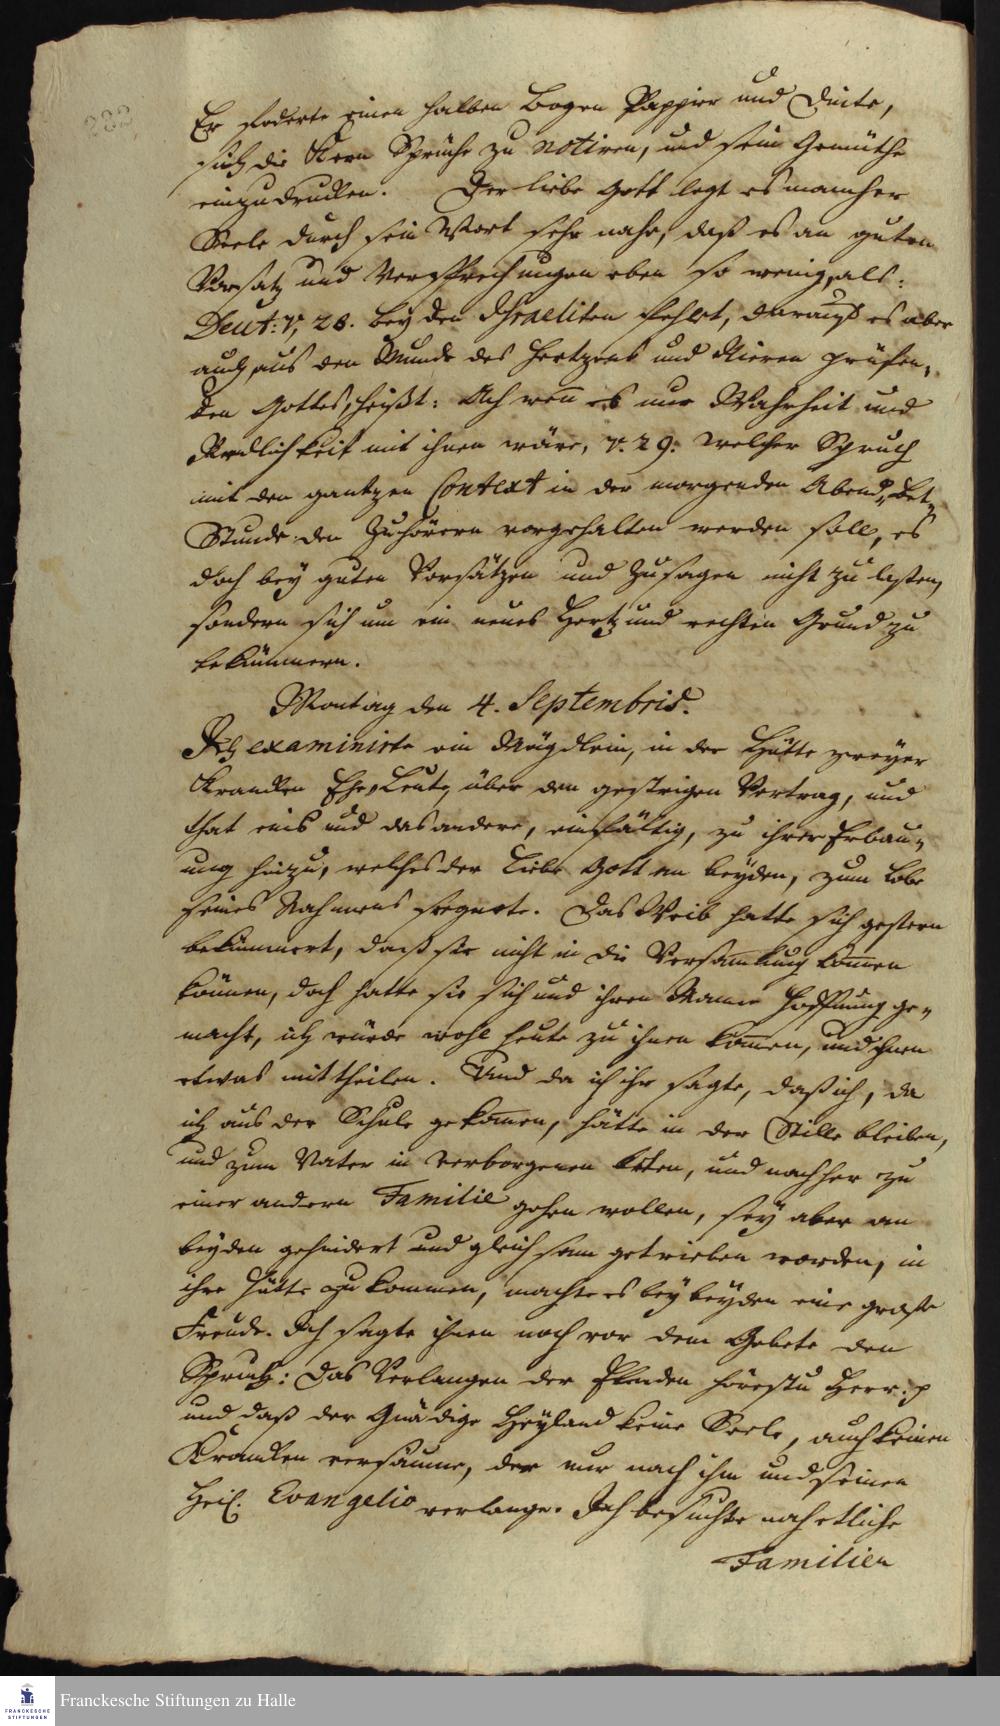 232
Er foderte einen halben Bogen Pappier und Dinte,
sich die Kern Sprüche zu notiren, und sein Gemüthe
einzudrucken. Der liebe Gott legt es mancher
Seele durch sein Wort sehr nahe, daß es an guten
Vorsatz und Versprechungen eben so wenig, als:
Deut: V, 28. bey den Israeliten fehlet, darauf es aber
auch, aus den Munde des Hertzens und Nieren prüfen„
den Gottes, heißt: Ach wen̄ es nur Wahrheit und
Redlichkeit mit ihnen wäre, v. 29. welcher Spruch
mit den gantzen Context in der morgenden Abend„Bet„
Stunde den Zuhörern vorgehalten werden soll, es
doch bey guten Vorsätzen und Zusagen nicht zu laßen,
sondern sich um ein neues Hertz und rechten Grund zu
bekümmern.
Montag den 4. Septembris.
Ich examinirte ein Mägdlein, in der Hütte zweyer
Krancken Ehe„Leute, über den gestrigen Vortrag, und
that eins und das andere, einfältig, zu ihrer Erbau„
ung hinzu, welches der Liebe Gott an beyden, zum Lobe
seines Nahmens segnete. Das Weib hatte sich gestern
bekümmert, daß sie nicht in die Versam̄lung kom̄en
können, doch hatte sie sich und ihren Manne Hoffnung ge„
macht, ich würde wohl heute zu ihnen kom̄en, und ihnen
etwas mittheilen. Und da ich ihr sagte, daß ich, da
ich aus der Schule gekom̄en, hätte in der Stille bleiben,
und zum Vater in verborgenen beten, und nachher zu
einer andern Familie gehen wollen, sey aber an
beyden gehindert und gleichsam getrieben worden, in
ihre Hütte zu kommen, machte es bey beyden eine große
Freude. Ich sagte ihnen noch vor dem Gebete den
Spruch: Das Verlangen der Elenden hörestu Herr. p
und daß der Gnädige Heyland keine Seele, auch keinen
Krancken versäume, der nur nach ihm und seinen
Heil. Evangelio verlange. Ich besuchte noch etliche
Familien
FRANCKESCHE
STIFTUNGEN
Franckesche Stiftungen zu Halle